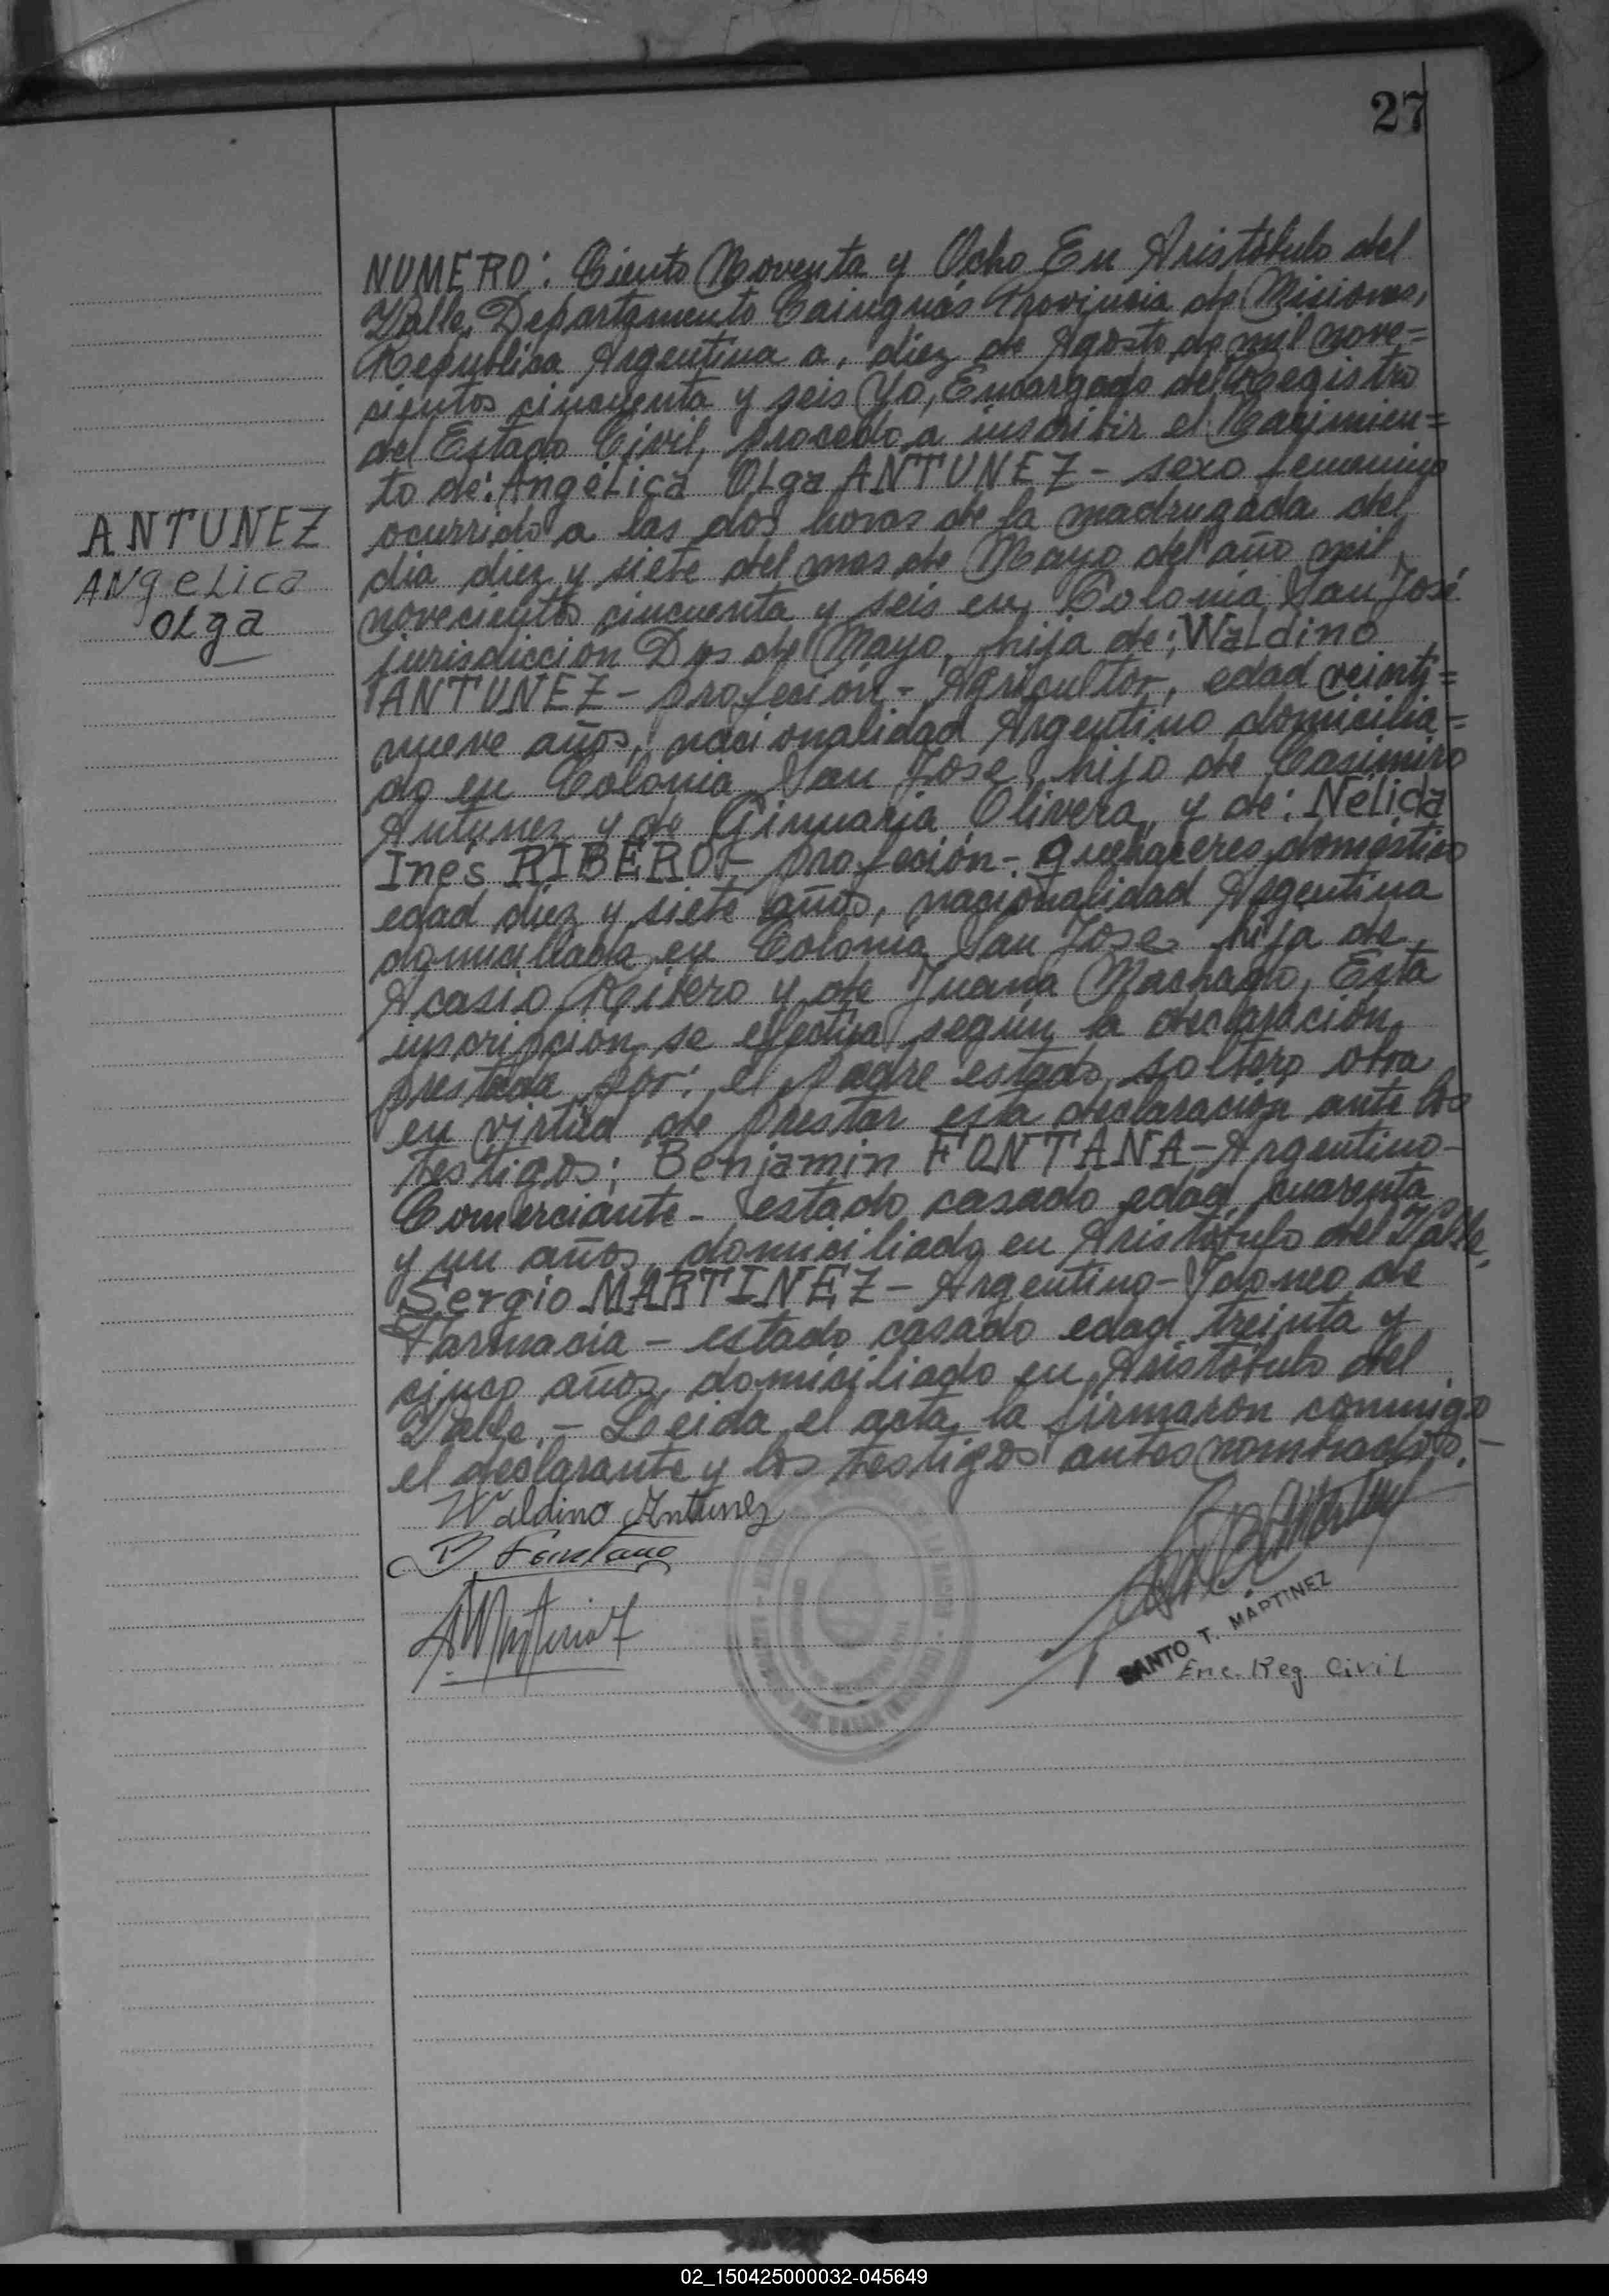 27
NUMERO: Ciento Noventa y Ocho En Aristóbulo del
Valle, Departamento Cainguás Provincia de Misiones,
República Argentina a, diez de Agosto de mil nove=
sientos cincuenta y seis Yo, Encargado del Registro
del Estado Civil, procedo a inscribir el Nacimien=
to de: Angélica Olga ANTUNEZ - sexo femenino
ocurrido a las dos horas de la madrugada del
dia diez y siete del mes de Mayo del año mil
novecientos cincuenta y seis en Colonia San José
jurisdicción Dos de Mayo, hija de: Waldino
ANTUNEZ - profeción - Agricultor, edad veinti=
nueve años, nacionalidad Argentino domicilia=
do en Colonia San Jose, hijo de Casimiro
Antunez y de Ginuaria Olivera, y de: Nélida
Inés RIBERO - profeción - quehaceres doméstico
edad diez y siete años, nacionalidad Argentina
domiciliada en Colonia San Jose hija de
Acasio Ribero y de Juana Machado, Esta
inscripción se efectua según la declaración
prestada por: el padre estado soltero obra
en virtud de prestar esta declaración ante los
testigos: Benjamin FONTANA - Argentino -
Comerciante - estado casado edad cuarenta
y un años domiciliado en Aristóbulo del Valle,
Sergio MARTINEZ - Argentino - Idoneo de
Farmacia - estado casado edad treinta y
cinco años, domiciliado en Aristóbulo del
Valle. - Leida el acta la firmaron conmigo
el declarante y los testigos antes nombrados. -
ANTUNEZ
ANgeLica
OLga
Waldino Antunez
B Fontana
SMartinez
SANTO T. MARTINEZ
Enc. Reg. Civil
02_150425000032-045649